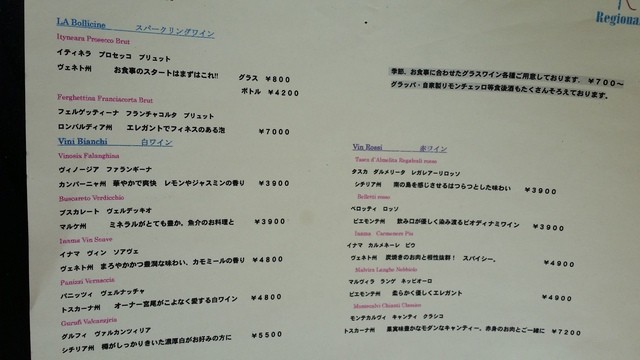 LA Bollicine スパークリングワイン
Itynera Prosecco Brut
イティネラ プロセッコ ブリュット
ヴェネト州 お食事のスタートはまずはこれ!! グラス ¥800
ボトル ¥4200
Ferghettina Franciacorta Brut
フェルゲッティーナ フランチャコルタ ブリュット
ロンバルディア州 エレガントでフィネスのある泡 ¥7000
Vini Bianchi 白ワイン
Vinosia Falanghina
ヴィノージア ファランギーナ
カンパーニャ州 華やかで爽快 レモンやジャスミンの香り ¥3900
Buscareto Verdicchio
ブスカレート ヴェルデッキオ
マルケ州 ミネラルがとても豊か。魚介のお料理と ¥3900
Inama Vin Soave
イナマ ヴィン ソアヴェ
ヴェネト州 まろやかかつ豊潤な味わい、カモミールの香り ¥4800
Panizzi Vernaccia
パニッツィ ヴェルナッチャ
トスカーナ州 オーナー宮尾がこよなく愛する白ワイン ¥4800
Gurufi Valcanzyria
グルフィ ヴァルカンツィリア
シチリア州 樽がしっかりきいた濃厚白がお好みの方に ¥5500
Regiona
季節、お食事に合わせたグラスワイン各種ご用意しております。 ¥700～
グラッパ・自家製リモンチェッロ等食後酒もたくさんそろえております。
Vin Rossi 赤ワイン
Tasca d'Almelita Regaleali rosso
タスカ ダルメリータ レガレアーリロッソ
シチリア州 南の島を感じさせるはつらつとした味わい ¥3900
Bellotti rosso
ベロッティ ロッソ
ピエモンテ州 飲み口が優しく染み渡るビオディナミワイン ¥3900
Inama Carmenere Piu
イナマ カルメネーレ ピウ
ヴェネト州 炭焼きのお肉と相性抜群! スパイシー。 ¥4900
Malvira Langhe Nebbiolo
マルヴィラ ランゲ ネッビオーロ
ピエモンテ州 柔らかく優しくエレガント ¥4900
Montecalvi Chianti Classico
モンテカルヴィ キャンティ クラシコ
トスカーナ州 果実味豊かなモダンなキャンティー、赤身のお肉とご一緒に ¥7200